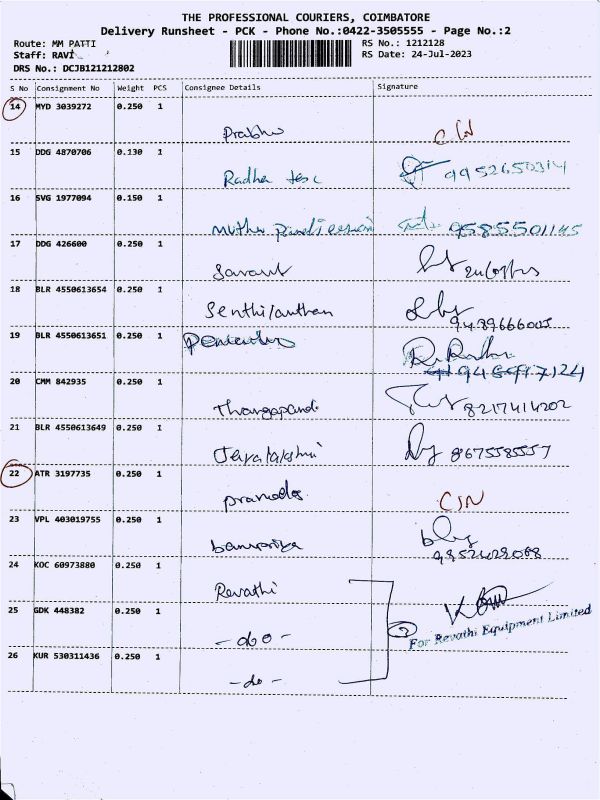 THE PROFESSIONAL COURIERS, COIMBATORE
Delivery Runsheet - PCK - Phone No.:0422-3505555 - Page No.:2
Route: MM PATTI
RS No.: 1212128
Staff: RAVI
RS Date: 24-Jul-2023
DRS No.: DCJB121212802
S No Consignment No Weight PCS Consignee Details Signature
14 MYD 3039272 0.250 1
Prabhu
15 DDG 4870706 0.130 1
Radha 9952650314
16 SVG 1977094 0.150 1
Muthu 9585501145
17 DDG 426600 0.250 1
18 BLR 4550613654 0.250 1
Senthilanthan
19 BLR 4550613651 0.250 1
20 CMM 842935 0.250 1
Thangapandi 8217414202
21 BLR 4550613649 0.250 1
Jeyalakshmi 8675585557
22 ATR 3197735 0.250 1
23 VPL 403019755 0.250 1
24 KOC 60973880 0.250 1
Revathi
25 GDK 448382 0.250 1
- do -
For Revathi Equipment Limited
26 KUR 530311436 0.250 1
- do -